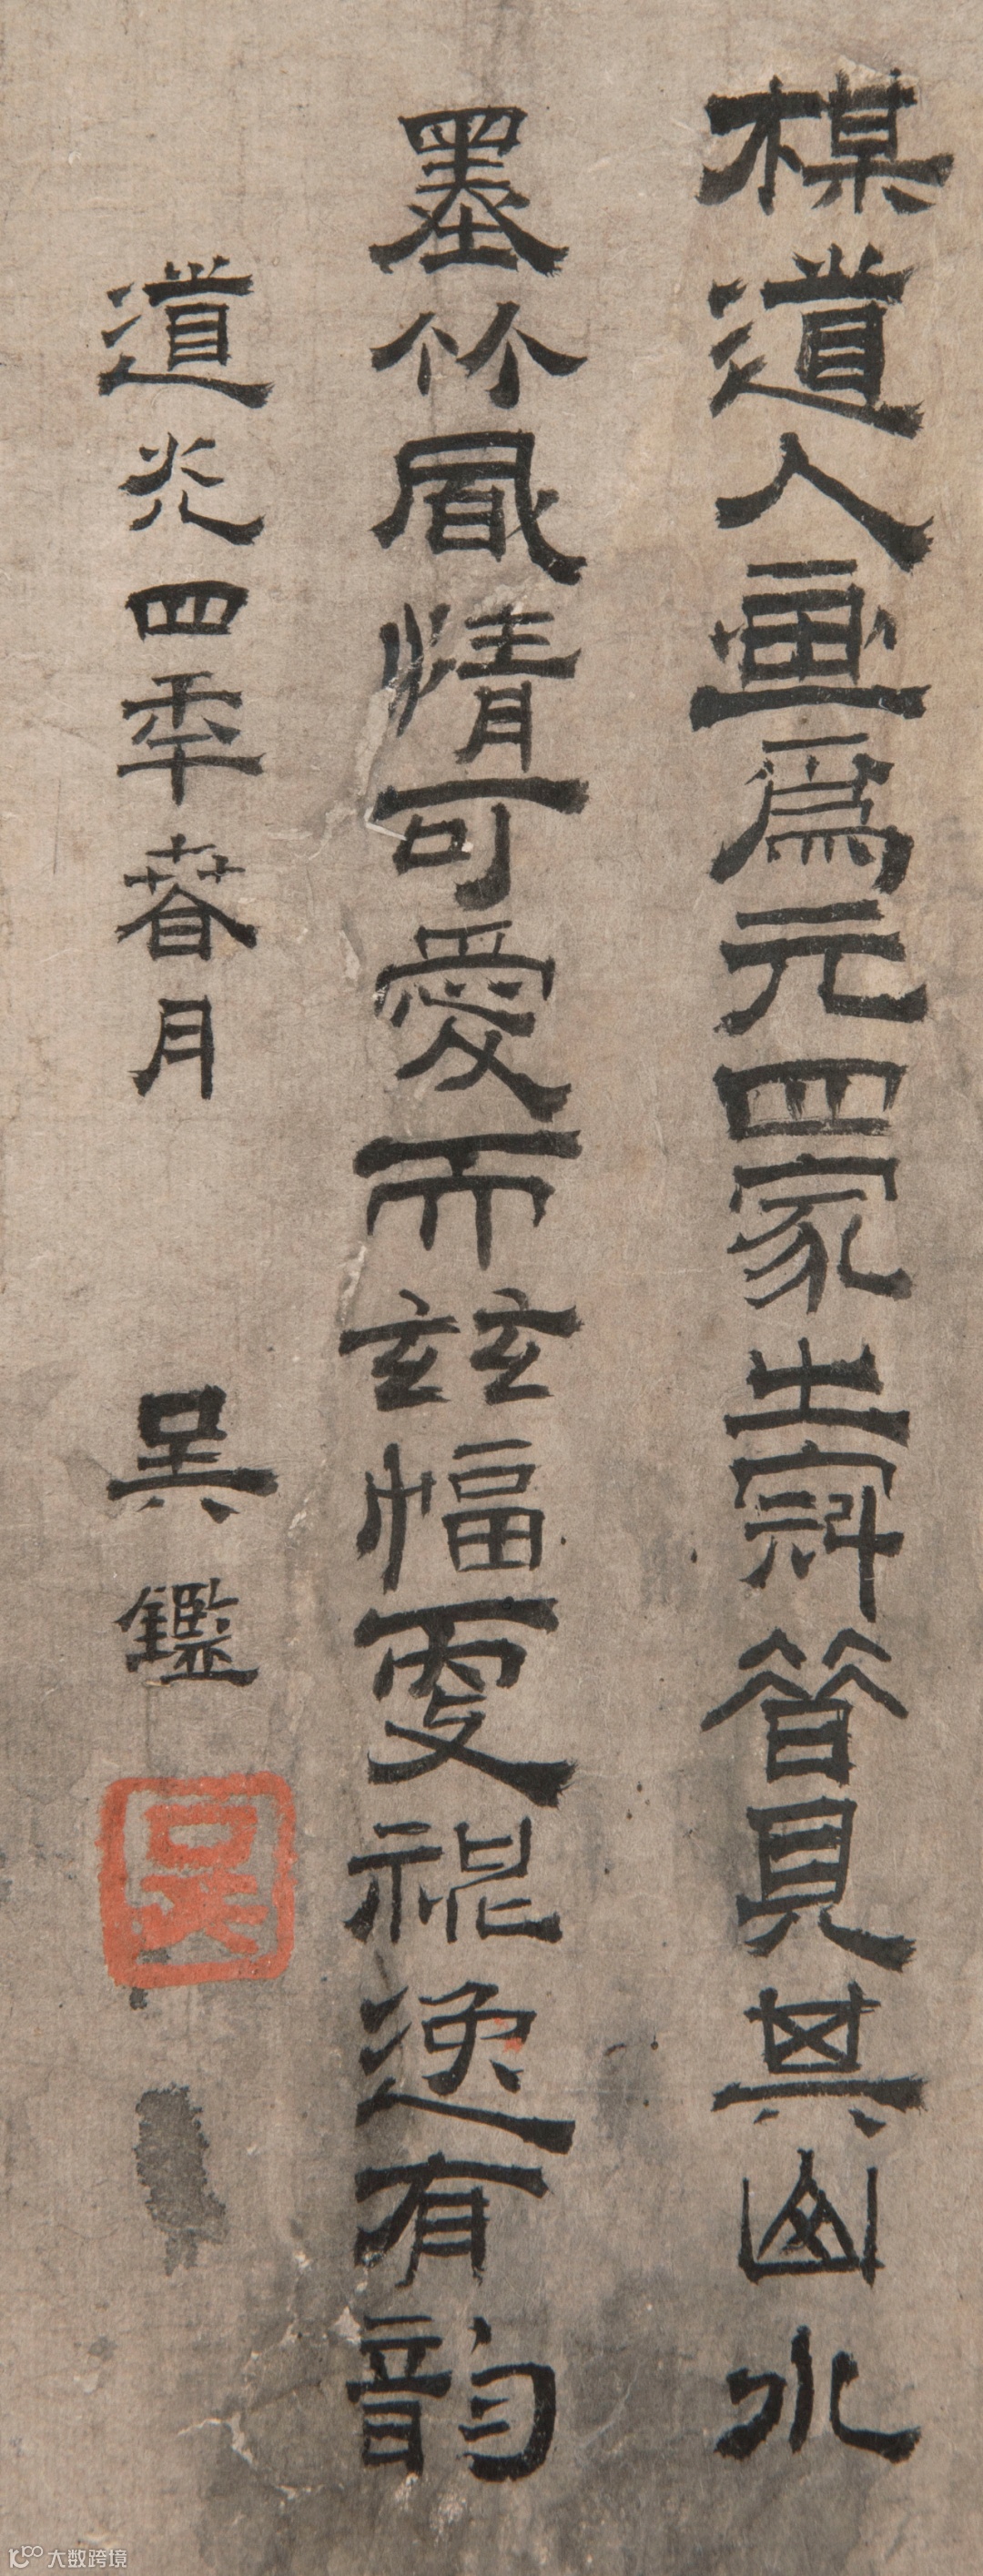 楳道人畫爲元四家之昔見其山水
墨竹風情可愛而茲幅更神逸有韵
道光四年春月 吳鑑
吳
大数跨境